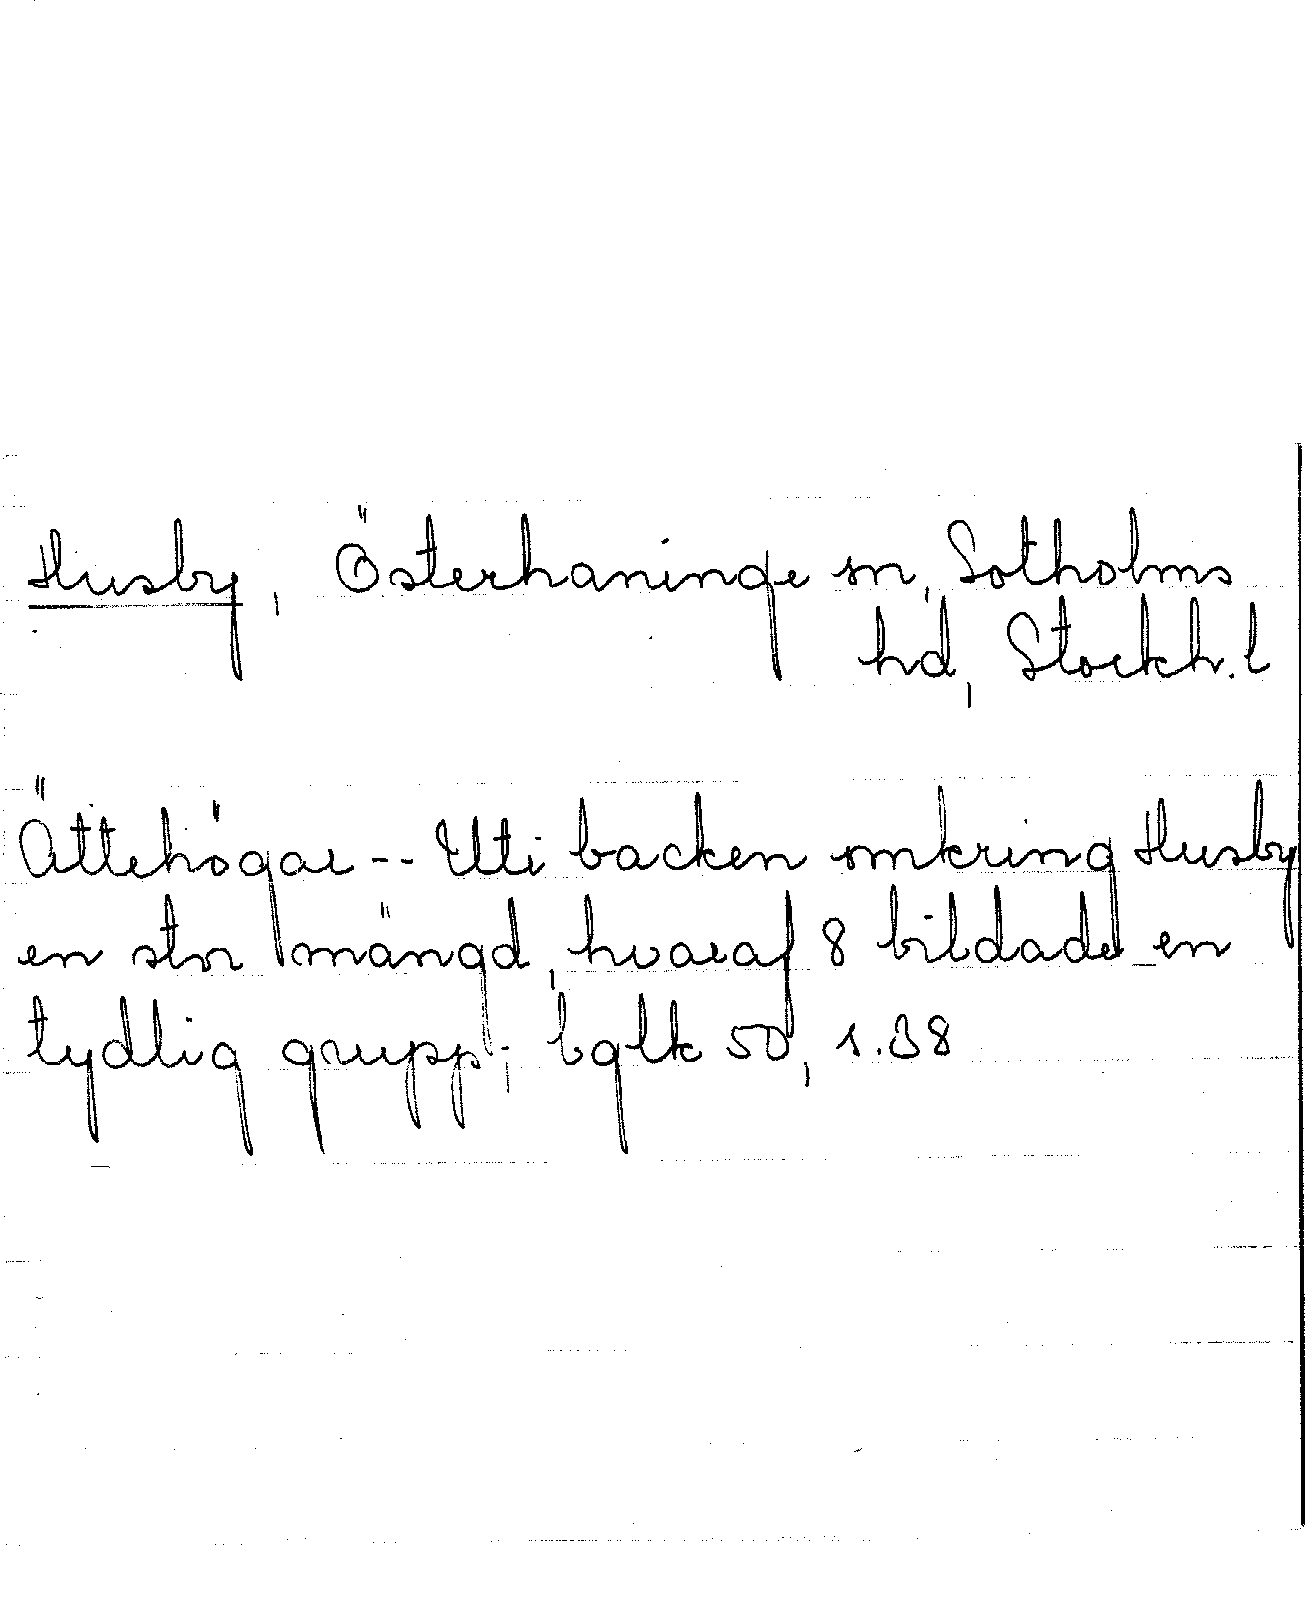 Husby, Österhaninge sn, Sotholms
hd, Stockh. l
Ättehögar -- Uti backen omkring Husby
en stor mängd, hvaraf 8 bildade en
tydlig grupp; bglk 50, s. 38